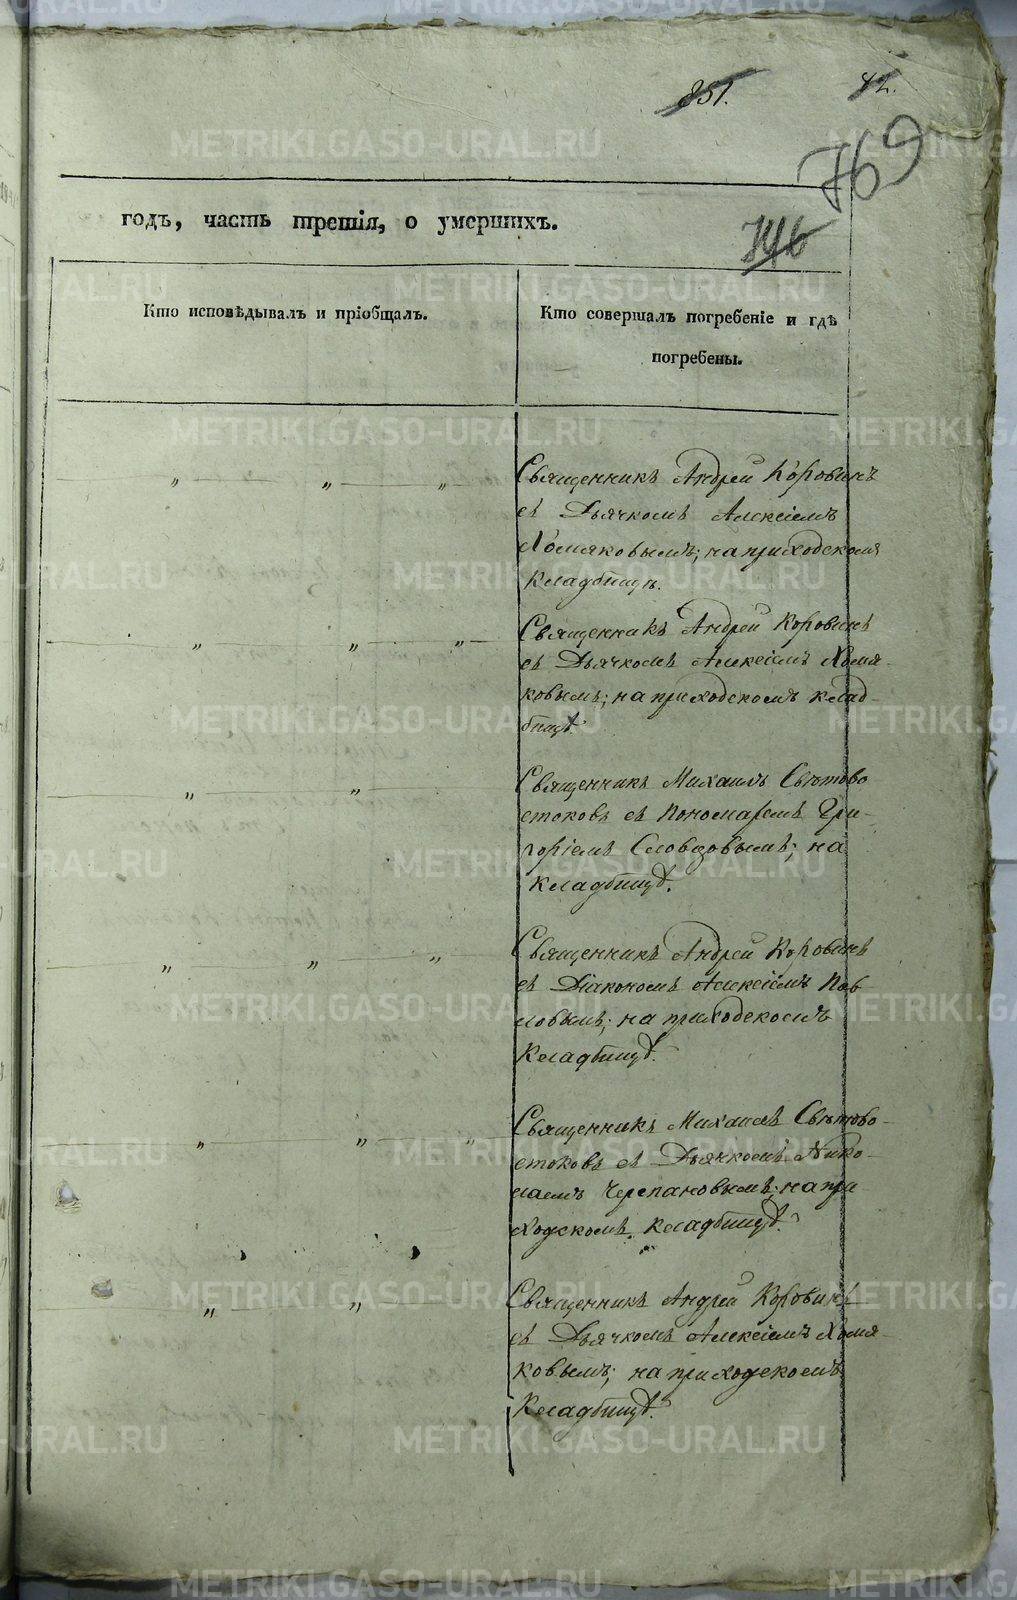 851.
42.
769
годъ, часть третія, о умершихъ.
Кто исповѣдывалъ и пріобщалъ.
Кто совершалъ погребеніе и гдѣ
погребены.
Священникъ Андрей Коровинъ
съ Дьячкомъ Алексіемъ
Хомяковымъ; на приходскомъ
кладбищѣ.
Священникъ Андрей Коровинъ
съ Дьячкомъ Алексіемъ Хомя-
ковымъ; на приходскомъ клад-
бищѣ.
Священникъ Михаилъ Свѣтово
стоковъ съ Пономаремъ Гри-
горіемъ Словцовымъ; на
кладбищѣ.
Священникъ Андрей Коровинъ
съ Діакономъ Алексіемъ Поп-
ловымъ; на приходскомъ
кладбищѣ.
Священникъ Михаилъ Свѣтово-
стоковъ съ Дьячкомъ Нико-
лаемъ Черепановымъ; на при-
ходскомъ кладбищѣ.
Священникъ Андрей Коровинъ
съ Дьячкомъ Алексіемъ Хомя-
ковымъ; на приходскомъ
кладбищѣ.
METRIKI.GASO-URAL.RU